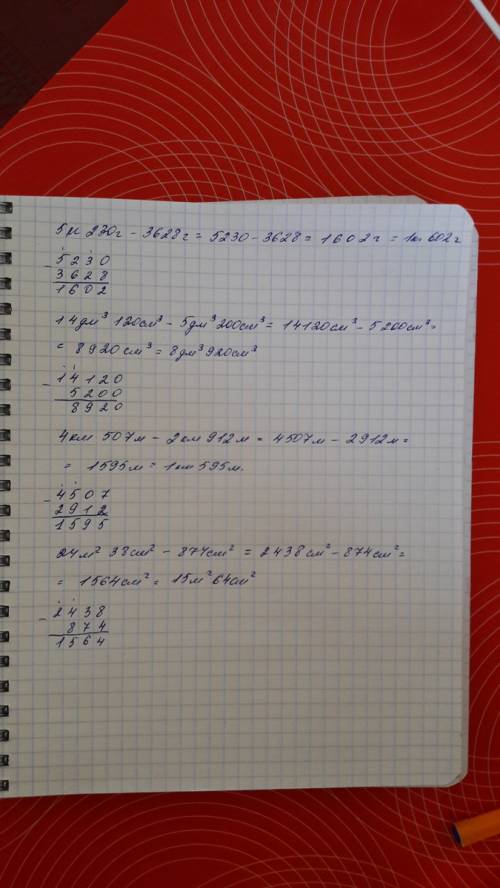 5кг 230г - 3628г = 5230 - 3628 = 1602г = 1кг 602г
- 5230
3628
1602
14дм³ 120см³ - 5дм³ 200см³ = 14120см³ - 5200см³ =
= 8920см³ = 8дм³ 920см³
- 14120
5200
8920
4км 507м - 2км 912м = 4507м - 2912м =
= 1595м = 1км 595м.
- 4507
2912
1595
24м² 38см² - 874см² = 2438см² - 874см² =
= 1564см² = 15м² 64см²
- 2438
874
1564